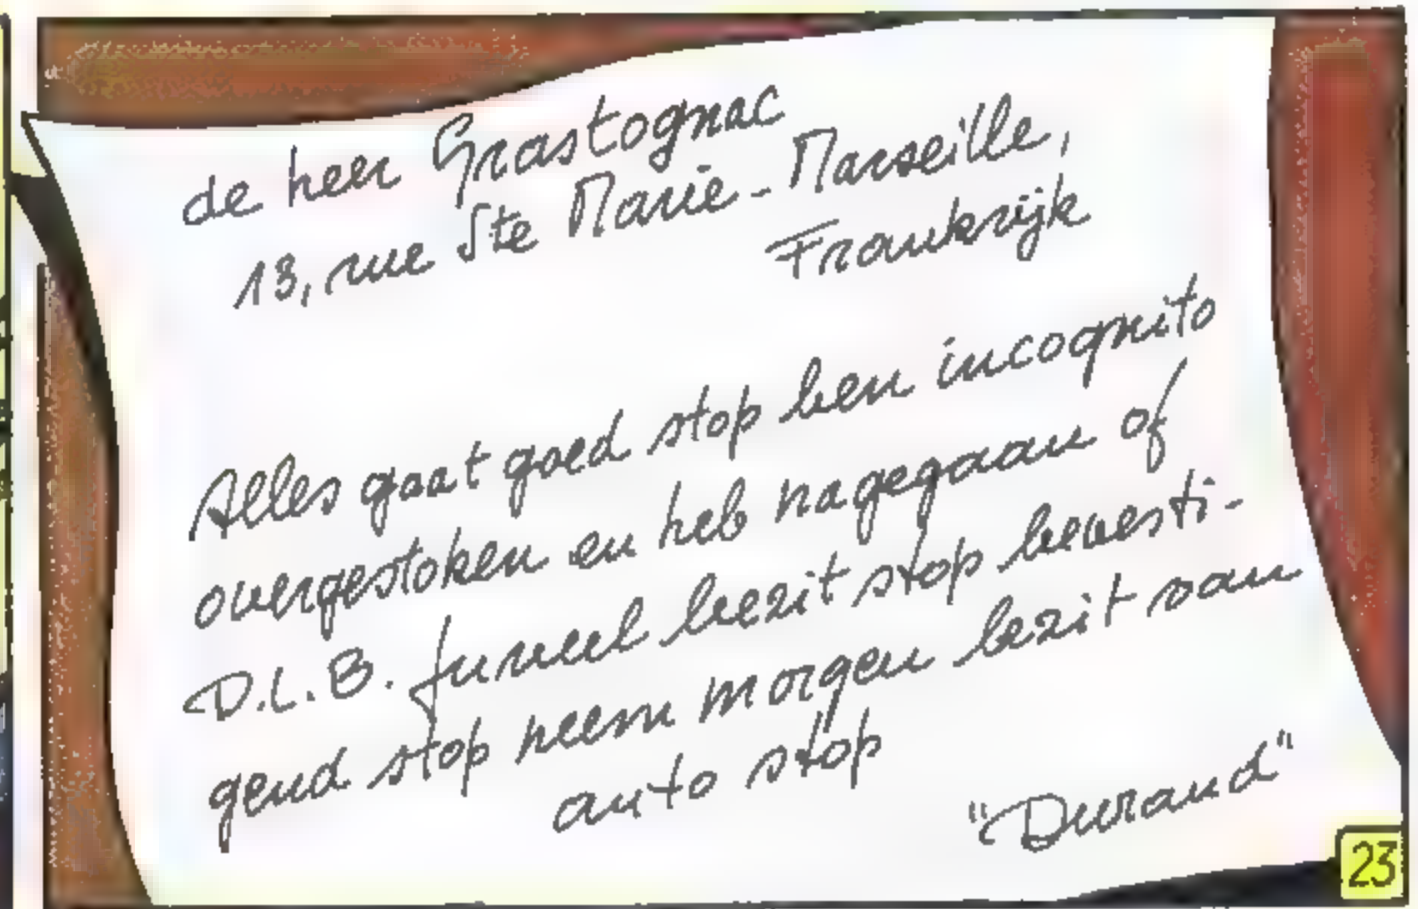 de heer Grastognac
13, rue Ste Marie - Marseille,
Frankrijk
Alles gaat goed stop ben incognito
overgestoken en heb nagegaan of
D.L.B. juweel bezit stop bevesti-
gend stop neem morgen bezit van
auto stop
"Durand"
23